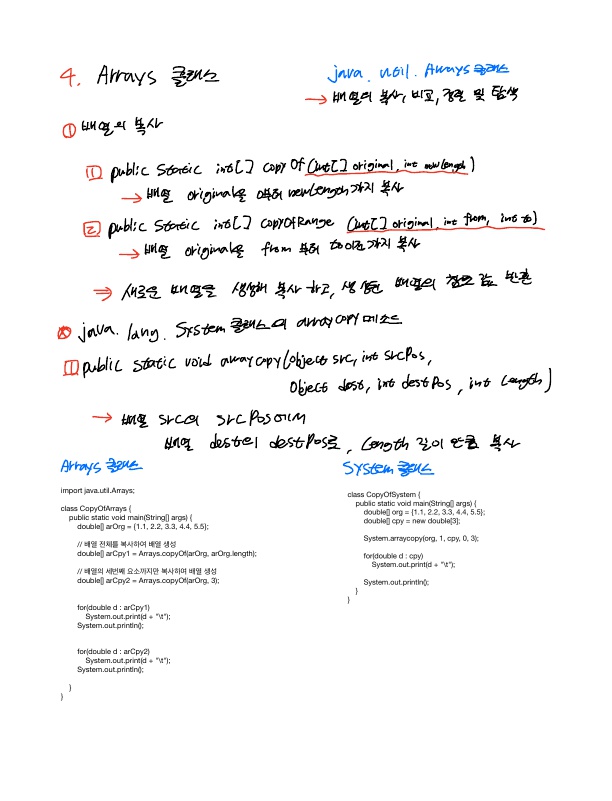 4. Arrays 클래스
java.util.Arrays 클래스
→ 배열의 복사, 비교, 정렬 및 탐색
① 배열의 복사
1 public static int[] copyOf(int[] original, int newLength)
→ 배열 original을 0부터 newLength까지 복사
2 public static int[] copyOfRange (int[] original, int from, int to)
→ 배열 original을 from 부터 to이전까지 복사
⇒ 새로운 배열을 생성해 복사 하고, 생성된 배열의 참조 값 반환
java.lang.System 클래스의 arraycopy 메소드
1 public static void arraycopy(Object src, int srcPos,
Object dest, int destPos, int length)
→ 배열 src의 srcPos에서
배열 dest의 destPos로, length 길이 만큼 복사
Arrays 클래스
import java.util.Arrays;
class CopyOfArrays {
public static void main(String[] args) {
double[] arOrg = {1.1, 2.2, 3.3, 4.4, 5.5};
// 배열 전체를 복사하여 배열 생성
double[] arCpy1 = Arrays.copyOf(arOrg, arOrg.length);
// 배열의 세번째 요소까지만 복사하여 배열 생성
double[] arCpy2 = Arrays.copyOf(arOrg, 3);
for(double d : arCpy1)
System.out.print(d + "\t");
System.out.println();
for(double d : arCpy2)
System.out.print(d + "\t");
System.out.println();
}
}
System 클래스
class CopyOfSystem {
public static void main(String[] args) {
double[] org = {1.1, 2.2, 3.3, 4.4, 5.5};
double[] cpy = new double[3];
System.arraycopy(org, 1, cpy, 0, 3);
for(double d : cpy)
System.out.print(d + "\t");
System.out.println();
}
}